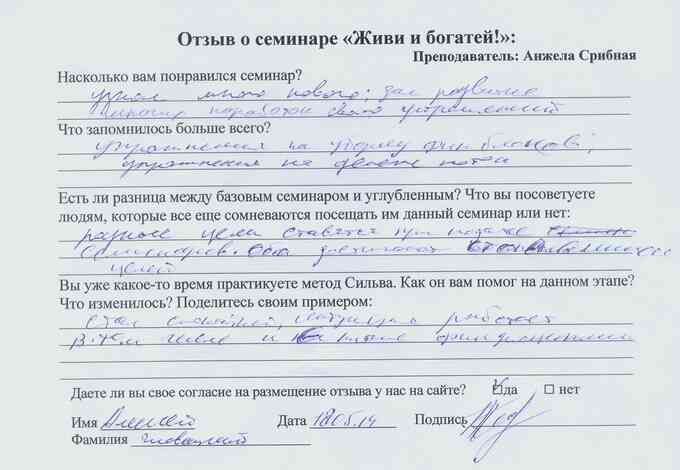 Отзыв о семинаре «Живи и богатей!»:
Преподаватель: Анжела Срибная
Насколько вам понравился семинар?
узнал много нового; дал развитие
своих устремлений
Что запомнилось больше всего?
упражнения на уборку фин блоков,
упражнения на денеж поток
Есть ли разница между базовым семинаром и углубленным? Что вы посоветуете
людям, которые все еще сомневаются посещать им данный семинар или нет:
разные цели ставятся при подаче
семинаров. достигают
целей
Вы уже какое-то время практикуете метод Сильва. Как он вам помог на данном этапе?
Что изменилось? Поделитесь своим примером:
Стал спокойней, интуиция работает
в том числе и
Даете ли вы свое согласие на размещение отзыва у нас на сайте? ☑ да ☐ нет
Имя Алексей Дата 18.05.14 Подпись
Фамилия